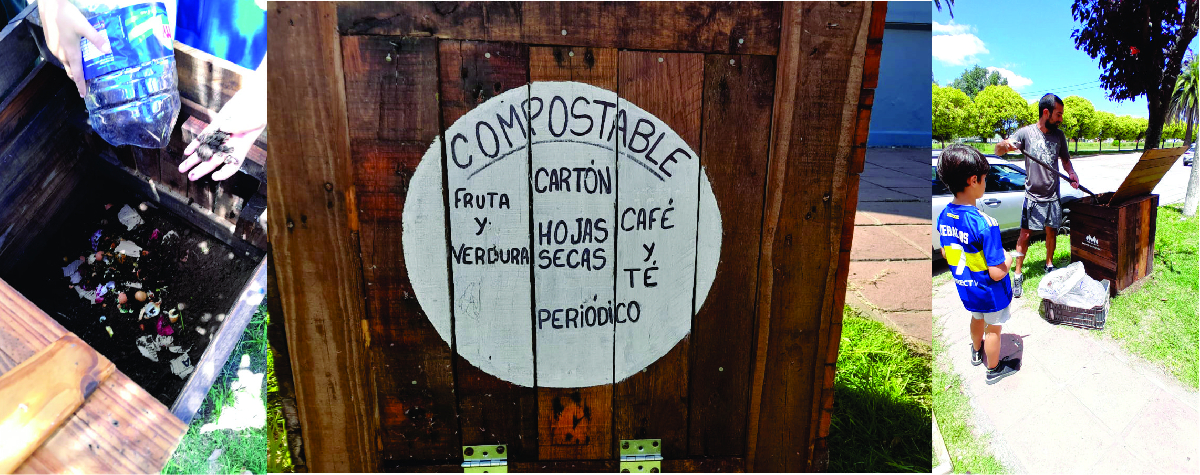 COMPOSTABLE
FRUTA
Y
VERDURA
CARTÓN
HOJAS
SECAS
PERIÓDICO
CAFÉ
Y
TÉ
7